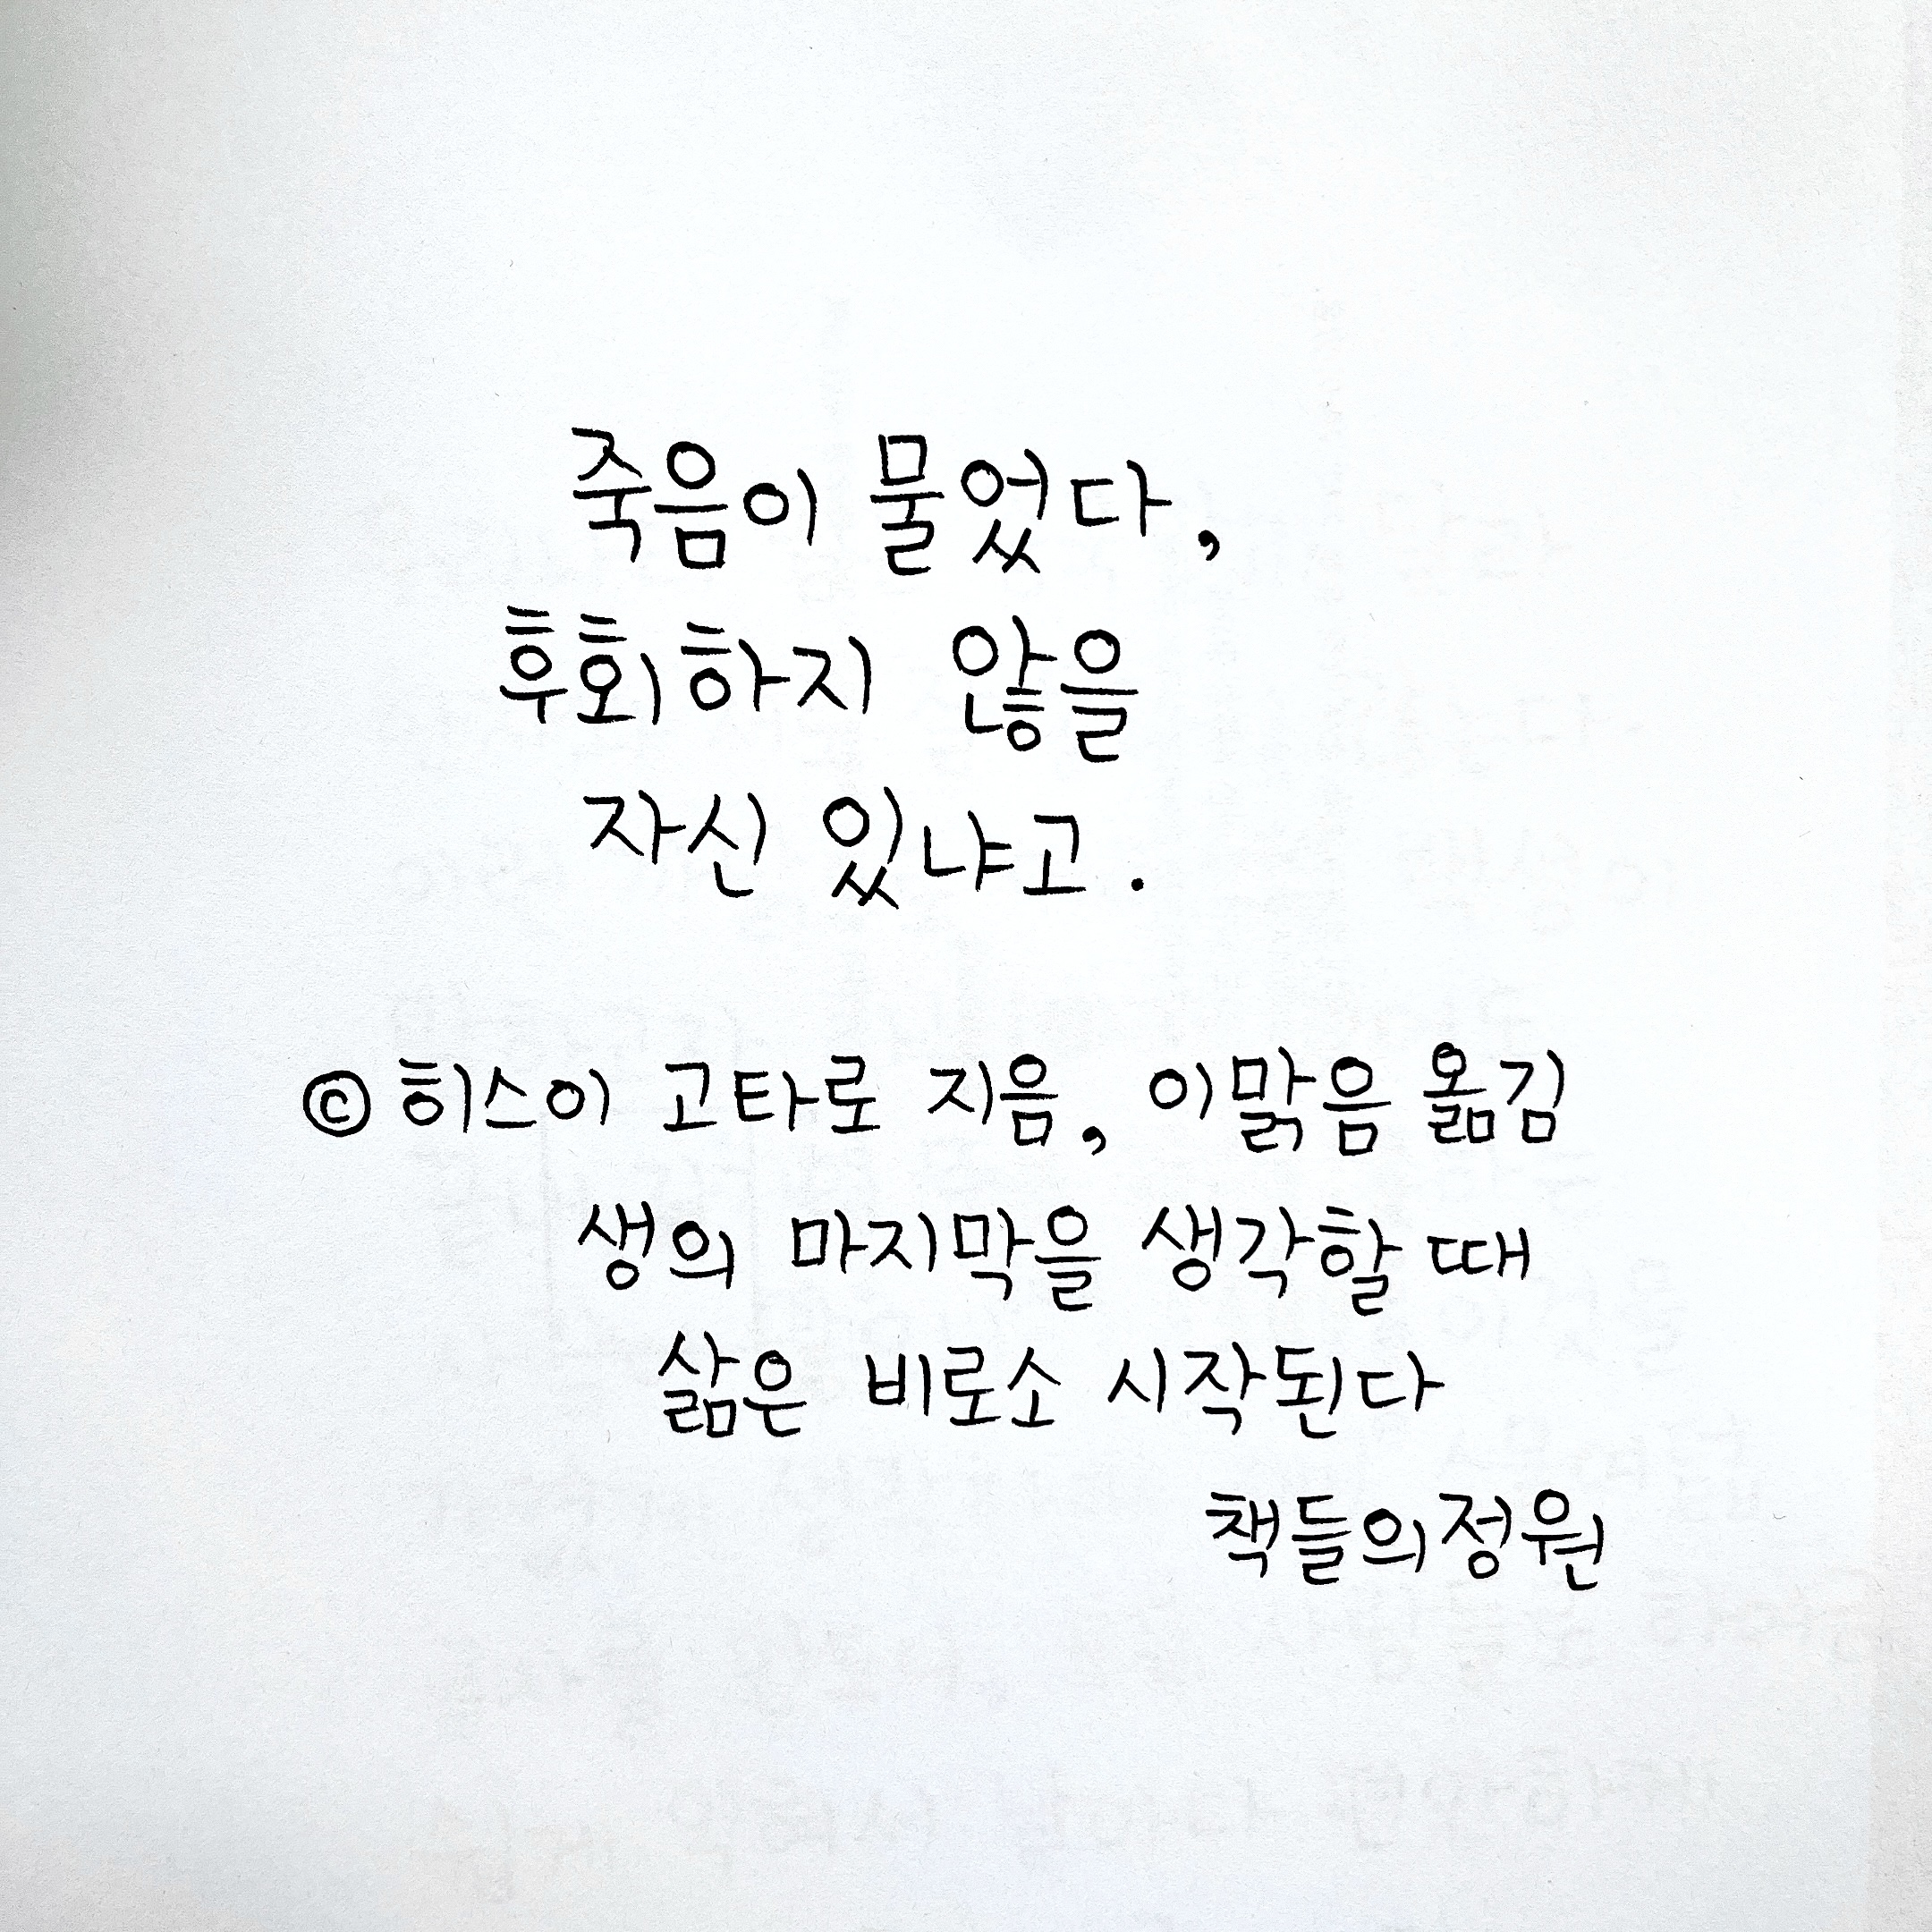 죽음이 물었다,
후회하지 않을
자신 있냐고.
© 히스이 고타로 지음, 이맑음 옮김
생의 마지막을 생각할 때
삶은 비로소 시작된다
책들의정원